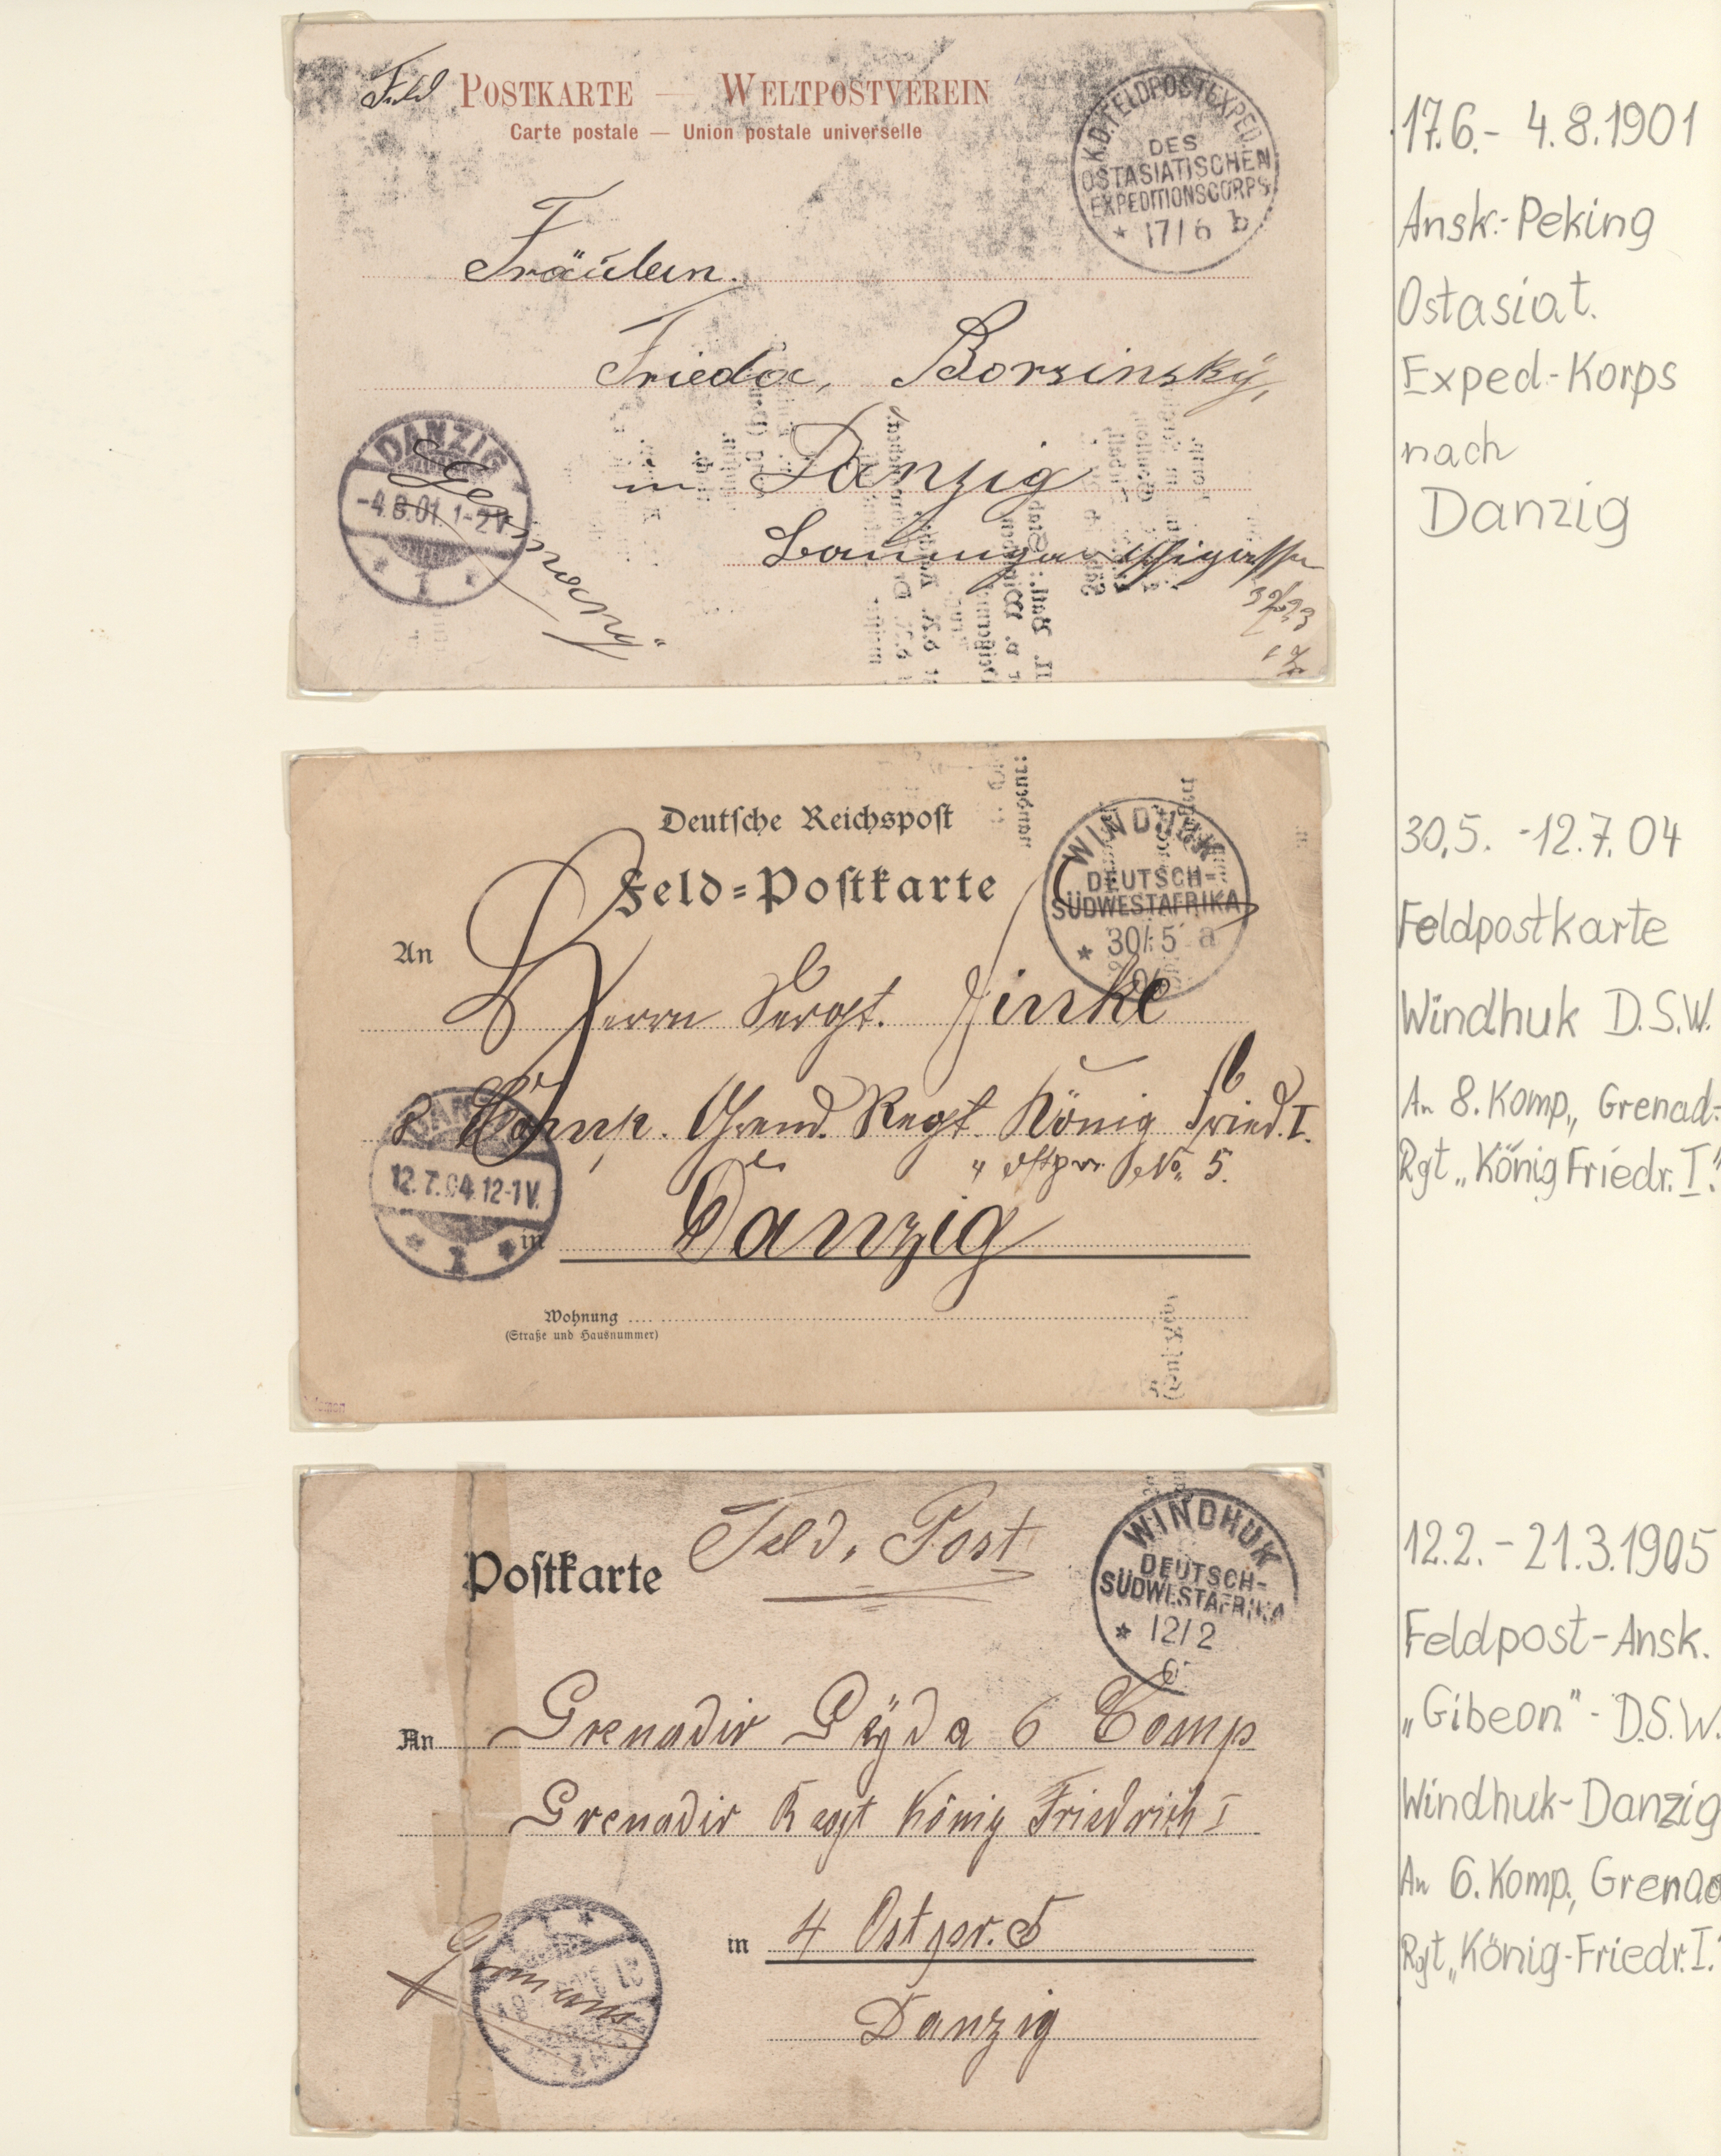 Feld POSTKARTE — WELTPOSTVEREIN
Carte postale — Union postale universelle
K.D. FELDPOSTEXPED.
DES
OSTASIATISCHEN
EXPEDITIONSCORPS
* 17/6 b
Fräulein
Frieda, Borsinsky,
in Danzig
DANZIG
-4.8.01. 1-2V.
* 1 *
Germany
17.6.- 4.8.1901
Ansk.-Peking
Ostasiat.
Exped.-Korps
nach
Danzig
Deutsche Reichspost
Feld-Postkarte
WINDHUK
DEUTSCH-
SÜDWESTAFRIKA
* 30/5 a
An
Herrn Sergt. Jinke
8 Comp. Grend. Regt. König Fried. I.
4 Ostpr. No. 5.
in Danzig
DANZIG
12.7.04.12-1V.
* 1 *
Wohnung
(Straße und Hausnummer)
30.5. -12.7.04
Feldpostkarte
Windhuk D.S.W.
An 8. Komp., Grenad.-
Rgt „König Friedr. I."
Postkarte Feld. Post
WINDHUK
DEUTSCH-
SÜDWESTAFRIKA
* 12/2
An Grenadir Gÿda 6 Comp
Grenadir Regt König Friedrich I
in 4 Ostpr. 5
Danzig
Germany
12.2. - 21.3.1905
Feldpost-Ansk.
„Gibeon" - D.S.W.
Windhuk-Danzig
An 6. Komp., Grenad
Rgt „König-Friedr. I."